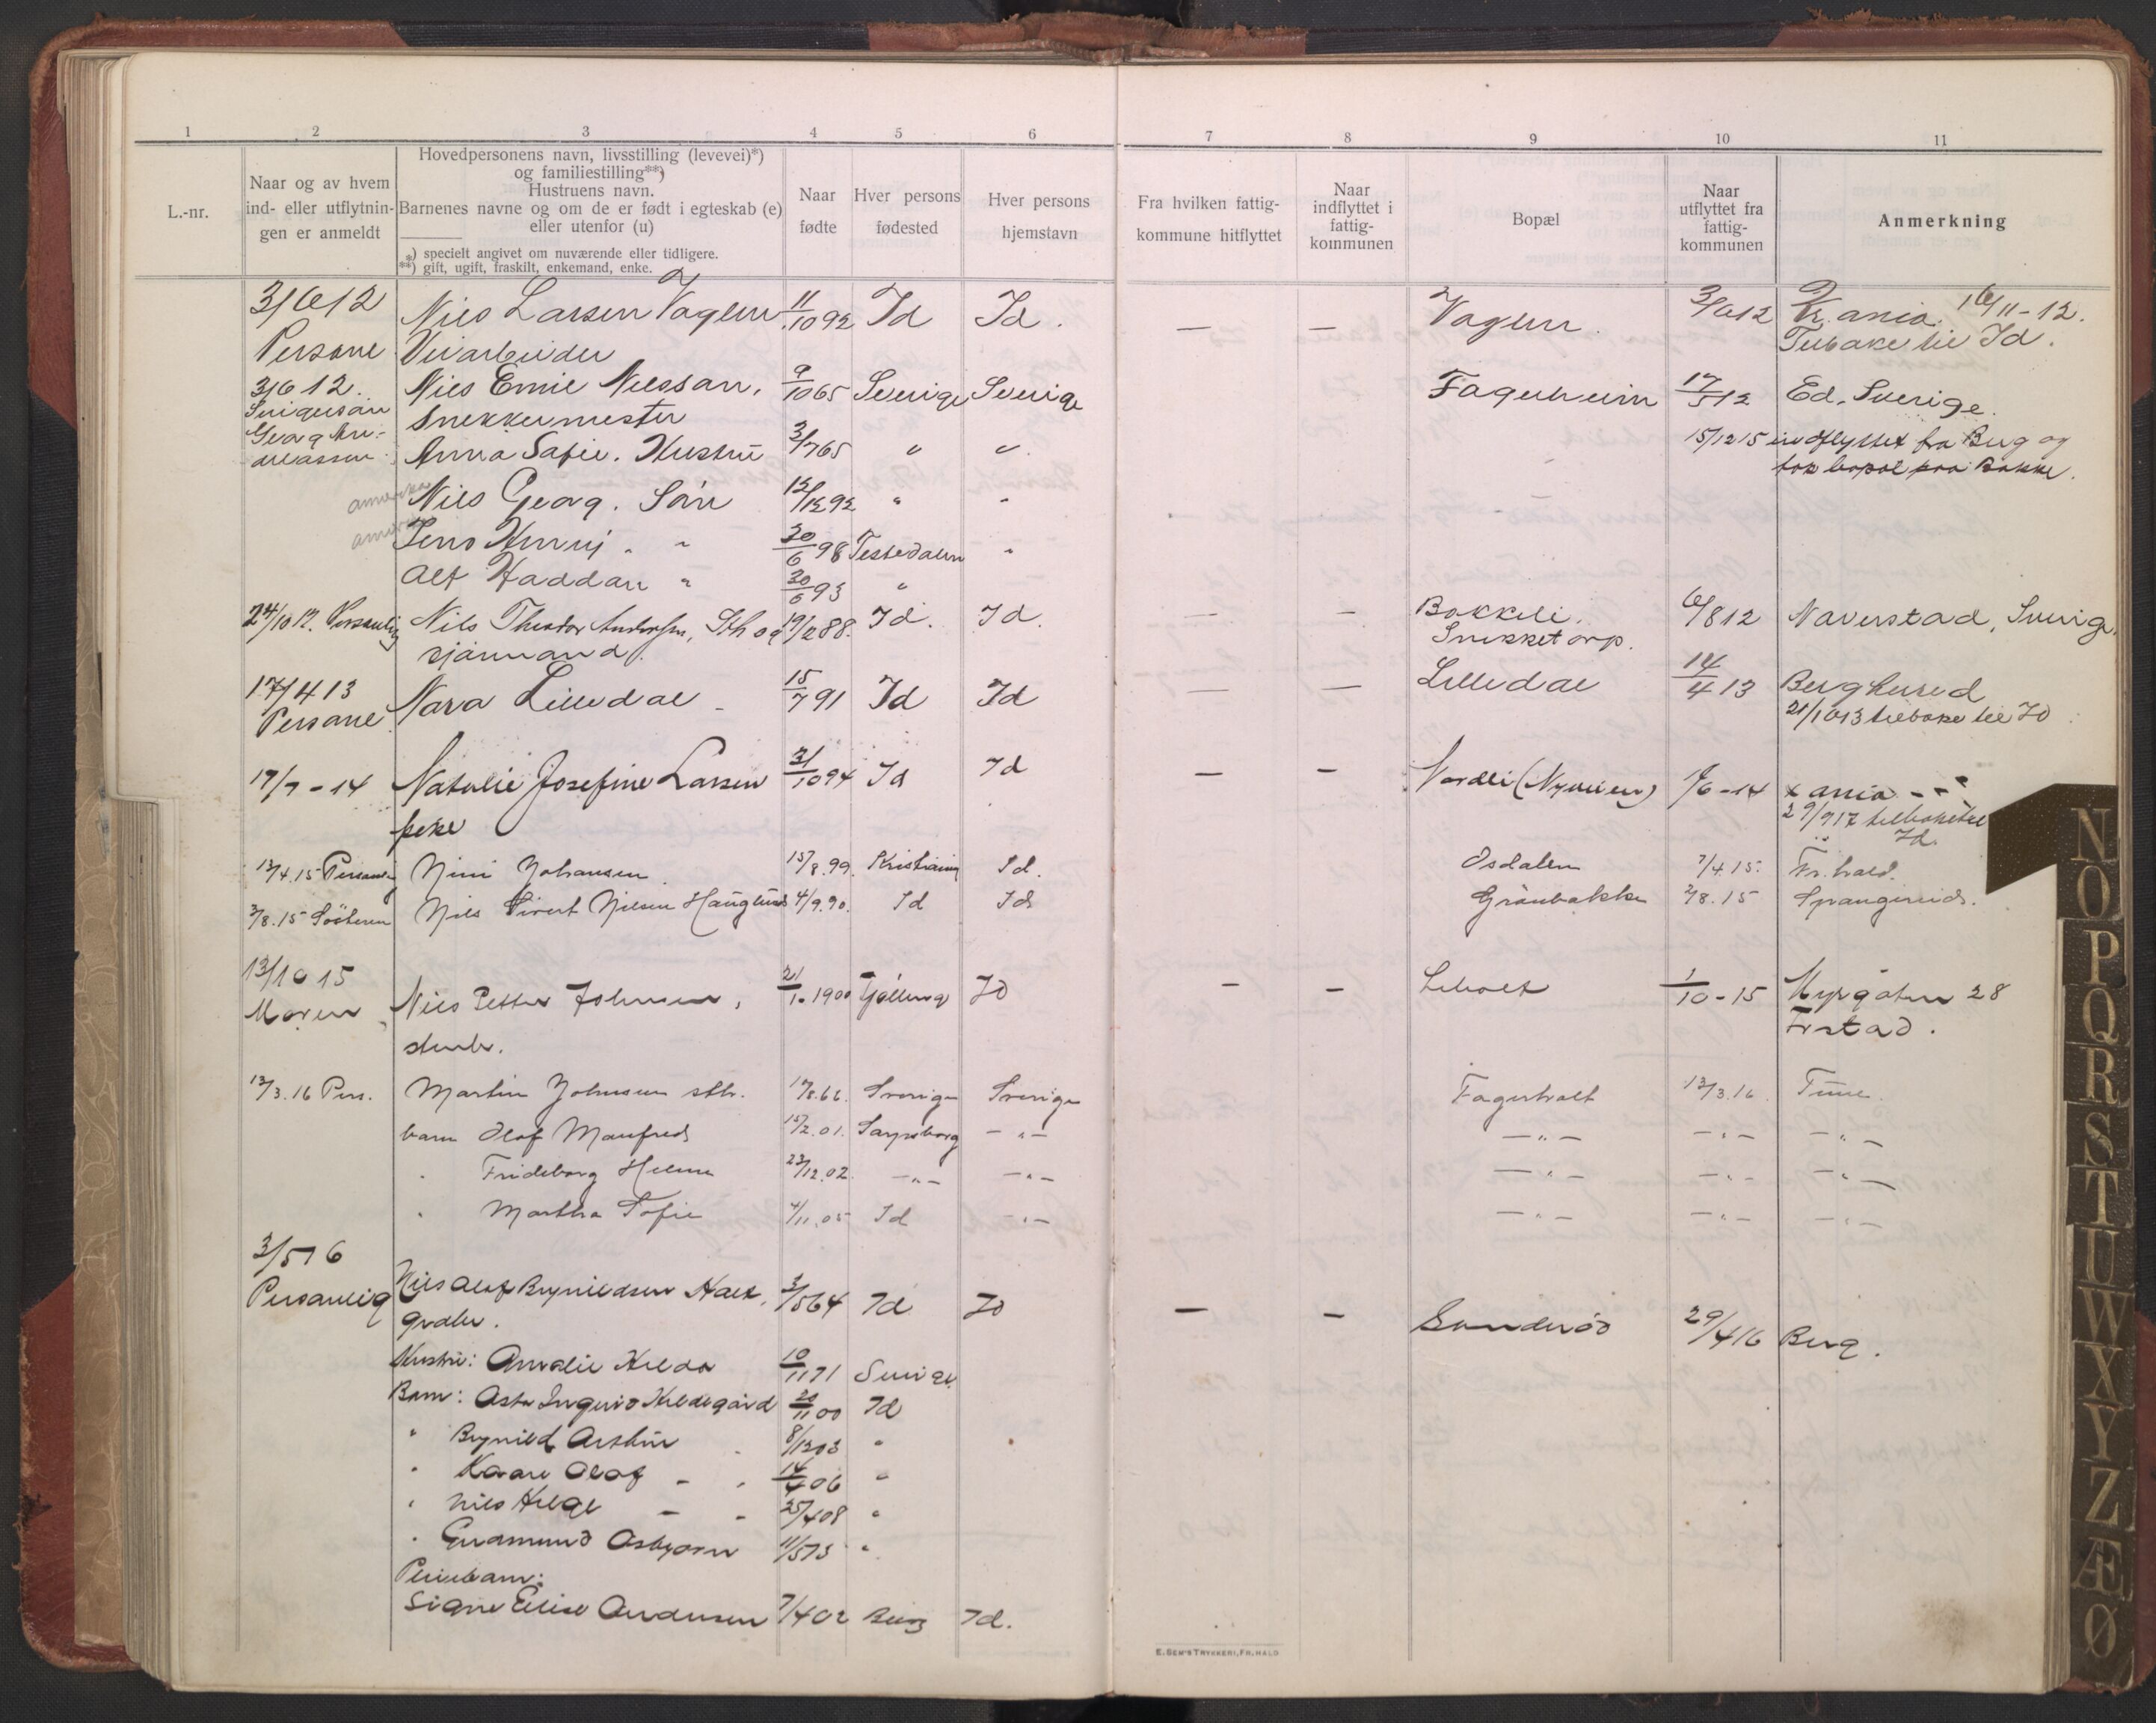 1 2 3 4 5 6 7 8 9 10 11
L.-nr.
Naar og av hvem
ind- eller utflytnin-
gen er anmeldt
Hovedpersonens navn, livsstilling (levevei)*)
og familiestilling**)
Hustruens navn.
Barnenes navne og om de er født i egteskab (e)
eller utenfor (u)
*) specielt angivet om nuværende eller tidligere.
**) gift, ugift, fraskilt, enkemand, enke.
Naar
fødte
Hver persons
fødested
Hver persons
hjemstavn
Fra hvilken fattig-
kommune hitflyttet
Naar
indflyttet i
fattig-
kommunen
Bopæl
Naar
utflyttet fra
fattig-
kommunen
Anmerkning
3/6 12 Nils Larsen Vaglen 11/10 92 Id Id. — — Vaglen. 3/6 12 Kr.ania. 16/11-12.
Persone Veiarbeider Tilbake til Id.
3/6 12. Nils Emil Nilssan, 9/10 65 Sverige Sverige Fagerheim 17/5 12 Ed, Sverige.
Snekkermester
Anna Safie. Hustru 3/7 65 " " 15/12 15 indflyttet fra Berg og
tok bopæl paa Bakke.
amerika Nils Georg. Sön 12/12 92 " "
amerika Jens Henrij " " 30/6 98 Testedalen "
Alf Haddan " 30/6 93 "
24/10 12. Personlig Nils Theodor Andersen, Sth og 19/2 88. Id. Id. — — Bakkeli. 6/8 12 Naverstad, Sverige.
sjömand. Snekketorp.
17/4 13 Nara Lilledal 15/7 91 Id Id — — Lilledal 14/4 13 Berghered
Persone 21/10 13 tilbake til Id
17/7-14 Natalie Josefine Larsen 31/10 94 Id Id — — Nordli (Nyveien) 1/6-14 Xania
pike 29/9 17 tilbake til
Id.
13/4.15 Personlig Nini Johansen. 15/8.99. Kristiania Id. Osdalen 7/4.15. Fr.hald.
3/8.15 Söstren Nils Sivert Nilsen Hauglund 4/9.90. Id Id Grönbakke 2/8.15 Spangereid.
13/10 15
Moren Nils Petter Johnsen, 21/1. 1900 Tjölling Id — — Liholt 1/10-15 Myrgaten 28
stenh. Frstad.
13/3.16 Pers. Martin Johnsen sth. 17/8.66. Sverige Sverige Fagerholt 13/3.16. Tune.
barn Olaf Manfred 15/2.01. Sarpsborg —"— —"— —"— —"—
" Frideborg Helene 23/12.02. —"— —"— —"— —"— —"—
" Martha Sofie 4/11.05 Id —"— —"— —"— —"—
3/5 16
Personlig Nils Olaf Brynildsen Holt, 3/5 64 Id Id — — Sanderöd 29/4 16 Berg.
Hustru: Amalie Hilda 10/11 71 Sverige
Barn: Asta Ingrid Hildegard 20/11 00 Id
" Brynild Arthur 8/12 03 "
" Kaare Olaf " " 14/4 06 "
" Nils Helge " " 25/4 08 "
" Gudmund Asbjørn 11/5 13 "
Pleiebarn:
Signe Elise Andersen 7/4 02 Berg Id.
E. SEM'S TRYKKERI, FR.HALD
N
O
P
Q
R
S
T
U
W
X
Y
Z
Æ
Ø